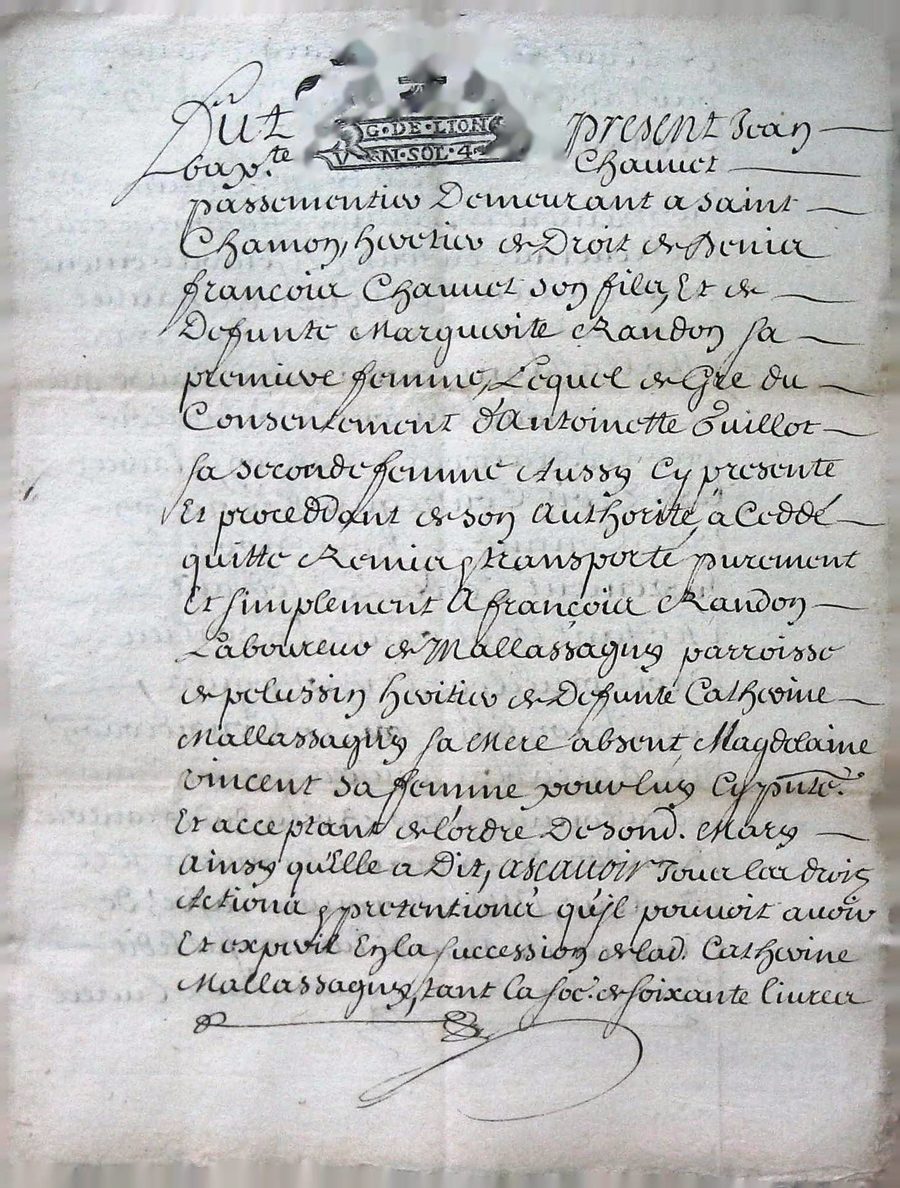 Fut present Jean
G·DE·LION
N·SOL·4
bap.te Chauvet
passementier Demeurant a saint
Chamon, heretier de Droit de Denis
francois Chauvet son fils, Et de
Defunte Marguerite Randon sa
premiere femme, Lequel de Gré du
Consentement d'Antoinette Guillot
sa seconde femme Aussy Cy presente
Et proceddant de son Authorité, a Ceddé
quitte Remis & transporté purement
Et simplement A francois Randon
Laboureur de Mallassagny parroisse
de pelussin heritier de Defunte Catherine
Mallassagny sa Mere absent Magdelaine
vincent sa femme pour luy Cy pnte.
Et acceptant de l'ordre De sond. Mary
Ainsy qu'Elle a Dit, ascavoir Tous les droits
Actions & pretentions qu'jl pouvoit avoir
Et Enla succession de lad. Catherine
Mallassagny, tant la de soixante livres